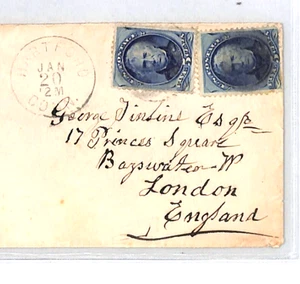 HARTFORD
JAN
20
12M
CONN.
George Tinline Esqre
17 Princes Square
Bayswater W
London
England